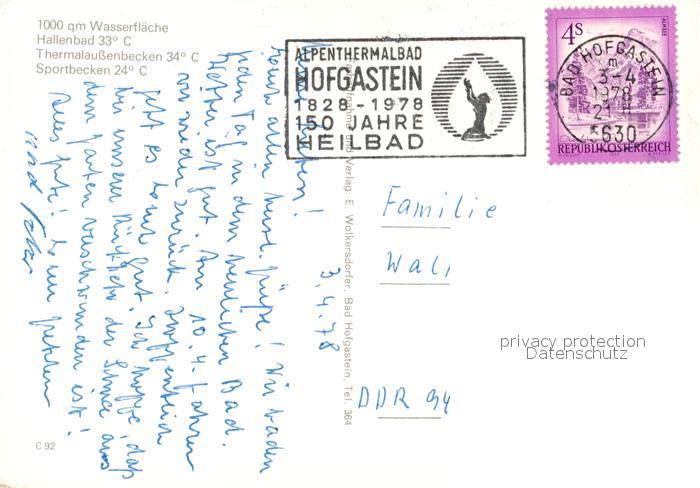 1000 qm Wasserfläche
Hallenbad 33° C
Thermalaußenbecken 34° C
Sportbecken 24° C
ALPENTHERMALBAD
HOFGASTEIN
1828-1978
150 JAHRE
HEILBAD
4S
ALMSEE
REPUBLIK ÖSTERREICH
BAD HOFGASTEIN
m
3-4
1978
21
5630
3.4.78
allen herzl. Grüße! Wir baden
jeden Tag in dem herrlichen Bad.
Wetter ist gut. Am 10.4. fahren
wir wieder zurück. Hoffentlich
geht es euch gut. Ich hoffe, daß
bei unserer Rückkehr der Schnee aus
dem Garten verschwunden ist!
Alles Gute!
und
Verlag E. Wolkersdorfer, Bad Hofgastein, Tel. 364
Familie
Wali
DDR 94
privacy protection
Datenschutz
C 92